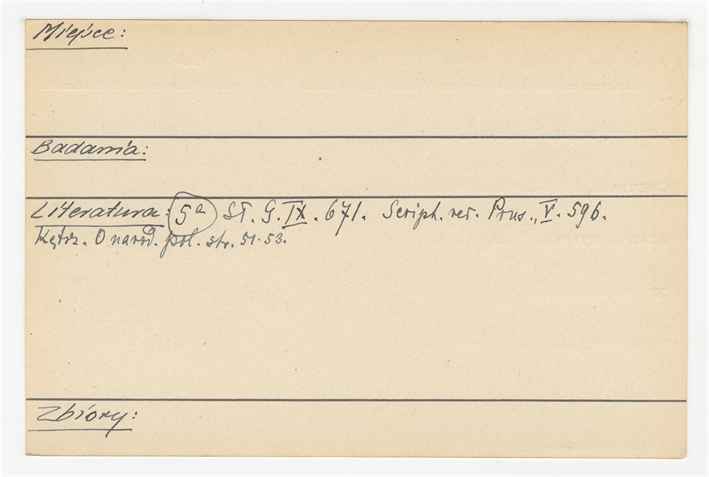 Miejsce:
Badania:
Literatura: 5a Sł. G. IX. 671. Script. rer. Prus., V. 596.
Kętrz. O narod. pol. str. 51-53.
Zbiory: